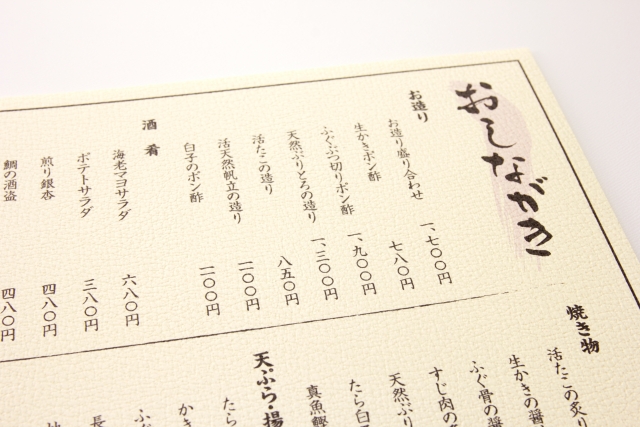 おしながき
お造り
お造り盛り合わせ 一、七〇〇円
生かきポン酢 七八〇円
ふぐぶつ切りポン酢 一、九〇〇円
天然ぶりとろの造り 一、三〇〇円
活たこの造り 八五〇円
活天然帆立の造り
白子のポン酢
酒肴
海老マヨサラダ 六八〇円
ポテトサラダ 三八〇円
煎り銀杏 四八〇円
鯛の酒盗 四八〇円
焼き物
活たこの炙り
生かきの醤
ふぐ骨の醤
すじ肉の
天然ぶり
たら白
真魚鰹
天ぷら・揚
たら
かき
ふぐ
長